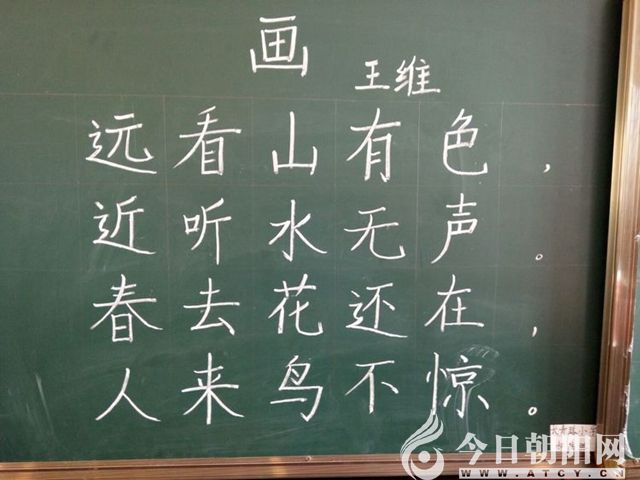 画
王维
远看山有色，
近听水无声。
春去花还在，
人来鸟不惊。
今日朝阳网
WWW.ATCY.CN